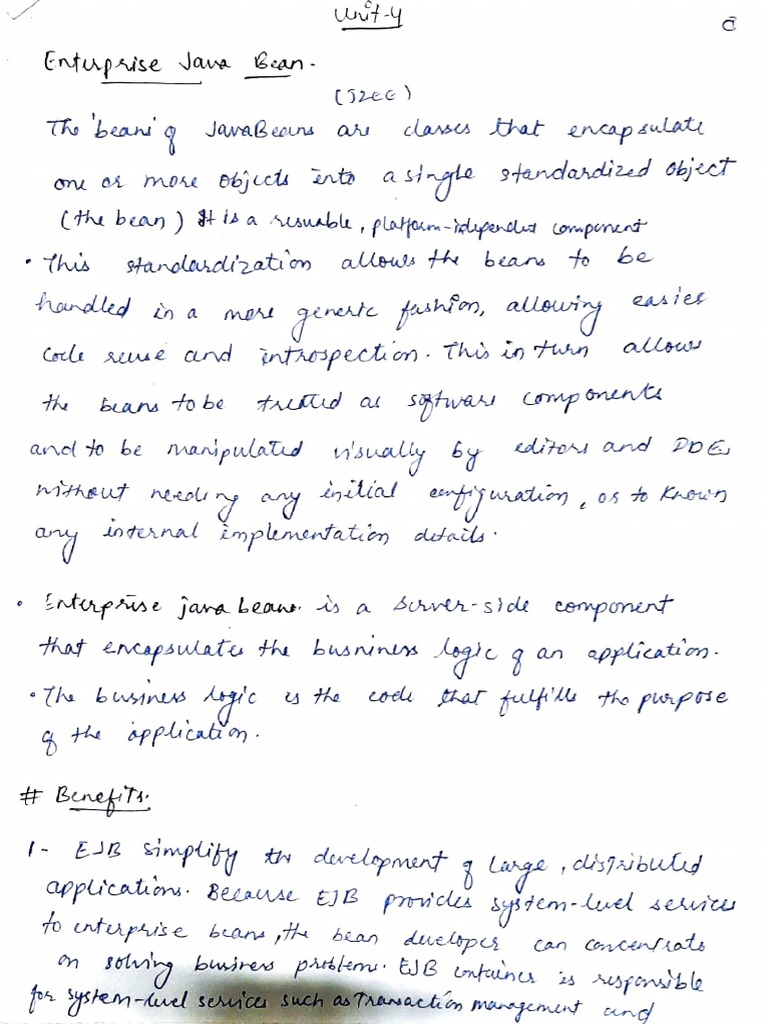 Unit-4
Enterprise Java Bean.
(J2EE)
The 'beans' of JavaBeans are classes that encapsulate
one or more objects into a single standardized object
(the bean) It is a resuable, platform-independent component
• This standardization allows the beans to be
handled in a more generic fashion, allowing easier
code reuse and introspection. This in turn allows
the beans to be treated as software components
and to be manipulated visually by editors and IDEs
without needing any initial configuration, or to known
any internal implementation details.
• Enterprise java beans is a server-side component
that encapsulates the busniness logic of an application.
• The business logic is the code that fulfills the purpose
of the application.
# Benefits.
1- EJB simplify the development of large, distributed
applications. Because EJB provides system-level services
to enterprise beans, the bean developer can concentrate
on solving business problem. EJB container is responsible
for system-level services such as Transaction management and